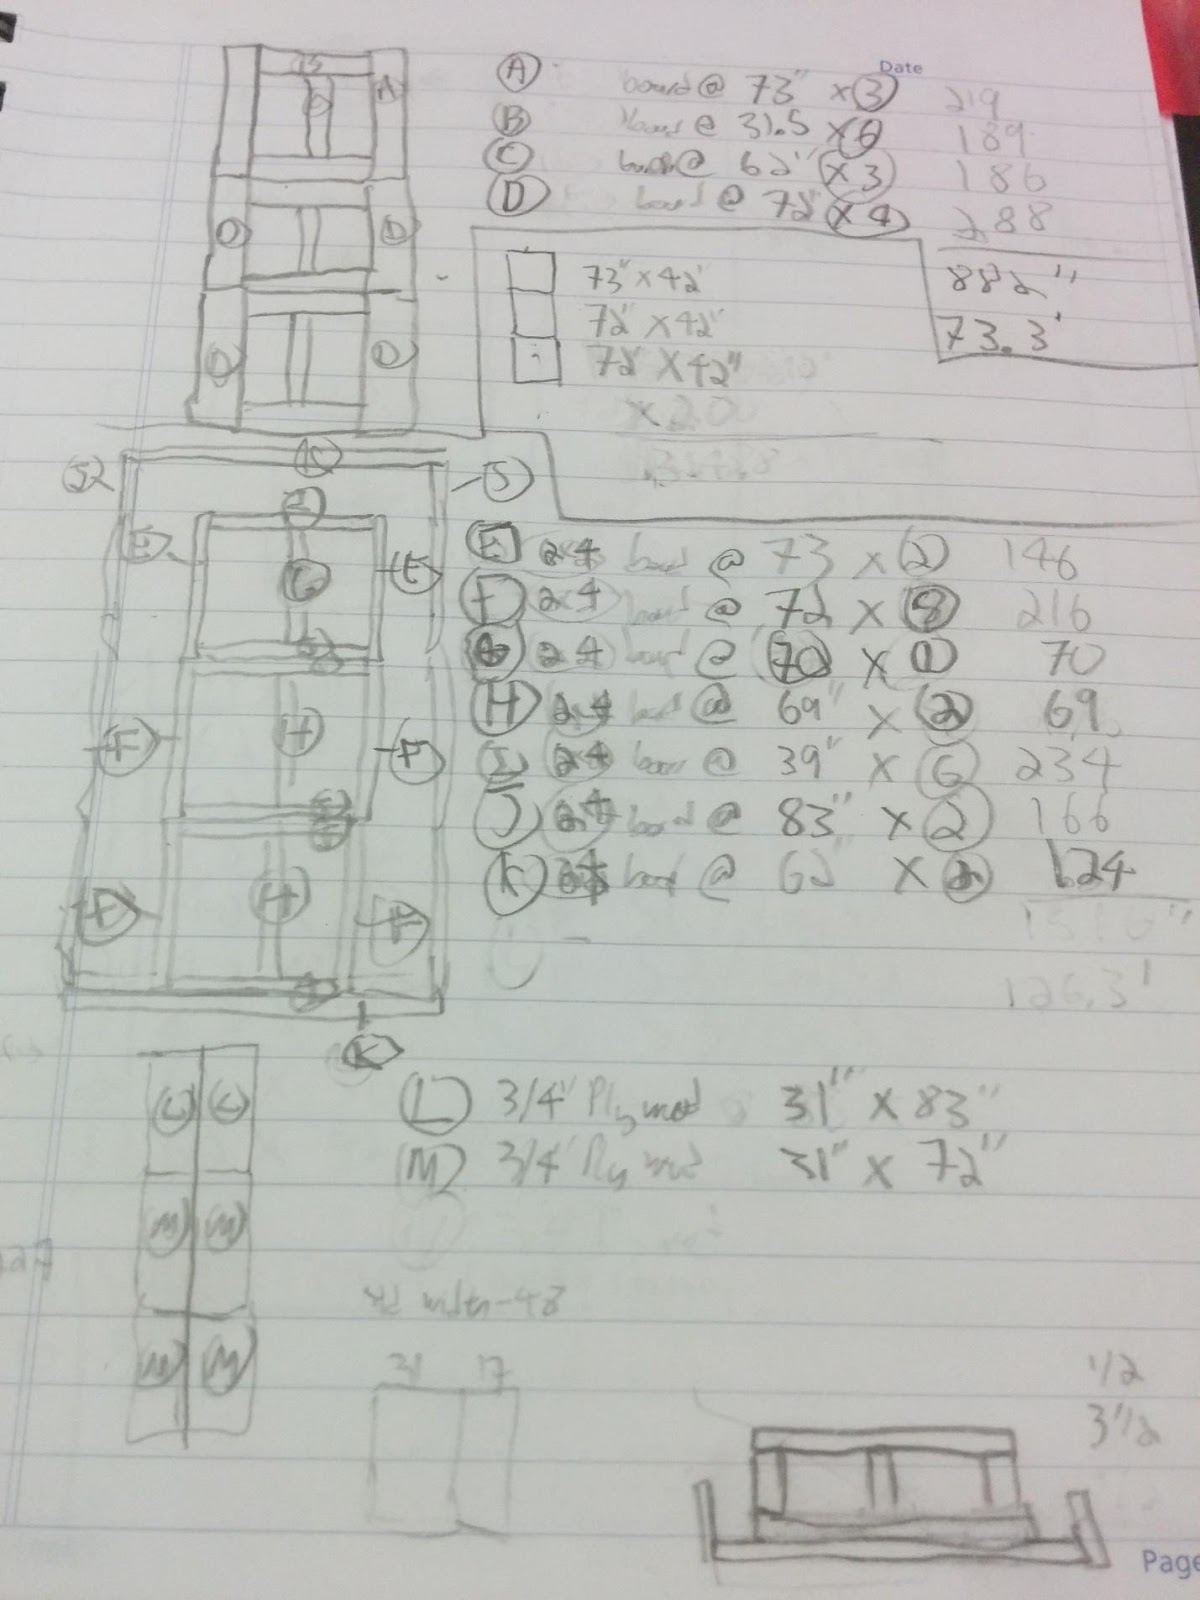 Date
A board @ 73" x 3 219
B board @ 31.5 x 6 189
C board @ 62" x 3 186
D board @ 72" x 4 288
882"
73.3'
73" x 42'
72" x 42"
72" x 42"
x 20
B
A
C
D
D
D
D
J
K
J
I
E
E
G
F
H
F
I
F
H
F
K
E 2x4 board @ 73 x 2 146
F 2x4 board @ 72 x 8 216
G 2x4 board @ 70 x 1 70
H 2x4 board @ 69" x 2 69
I 2x4 board @ 39" x 6 234
J 2x4 board @ 83" x 2 166
K 2x4 board @ 62" x 2 124
126.3'
L L
M M
M M
L 3/4" Plywood 31" x 83"
M 3/4" Plywood 31" x 72"
width-48
31 17
1/2
3 1/2
Page